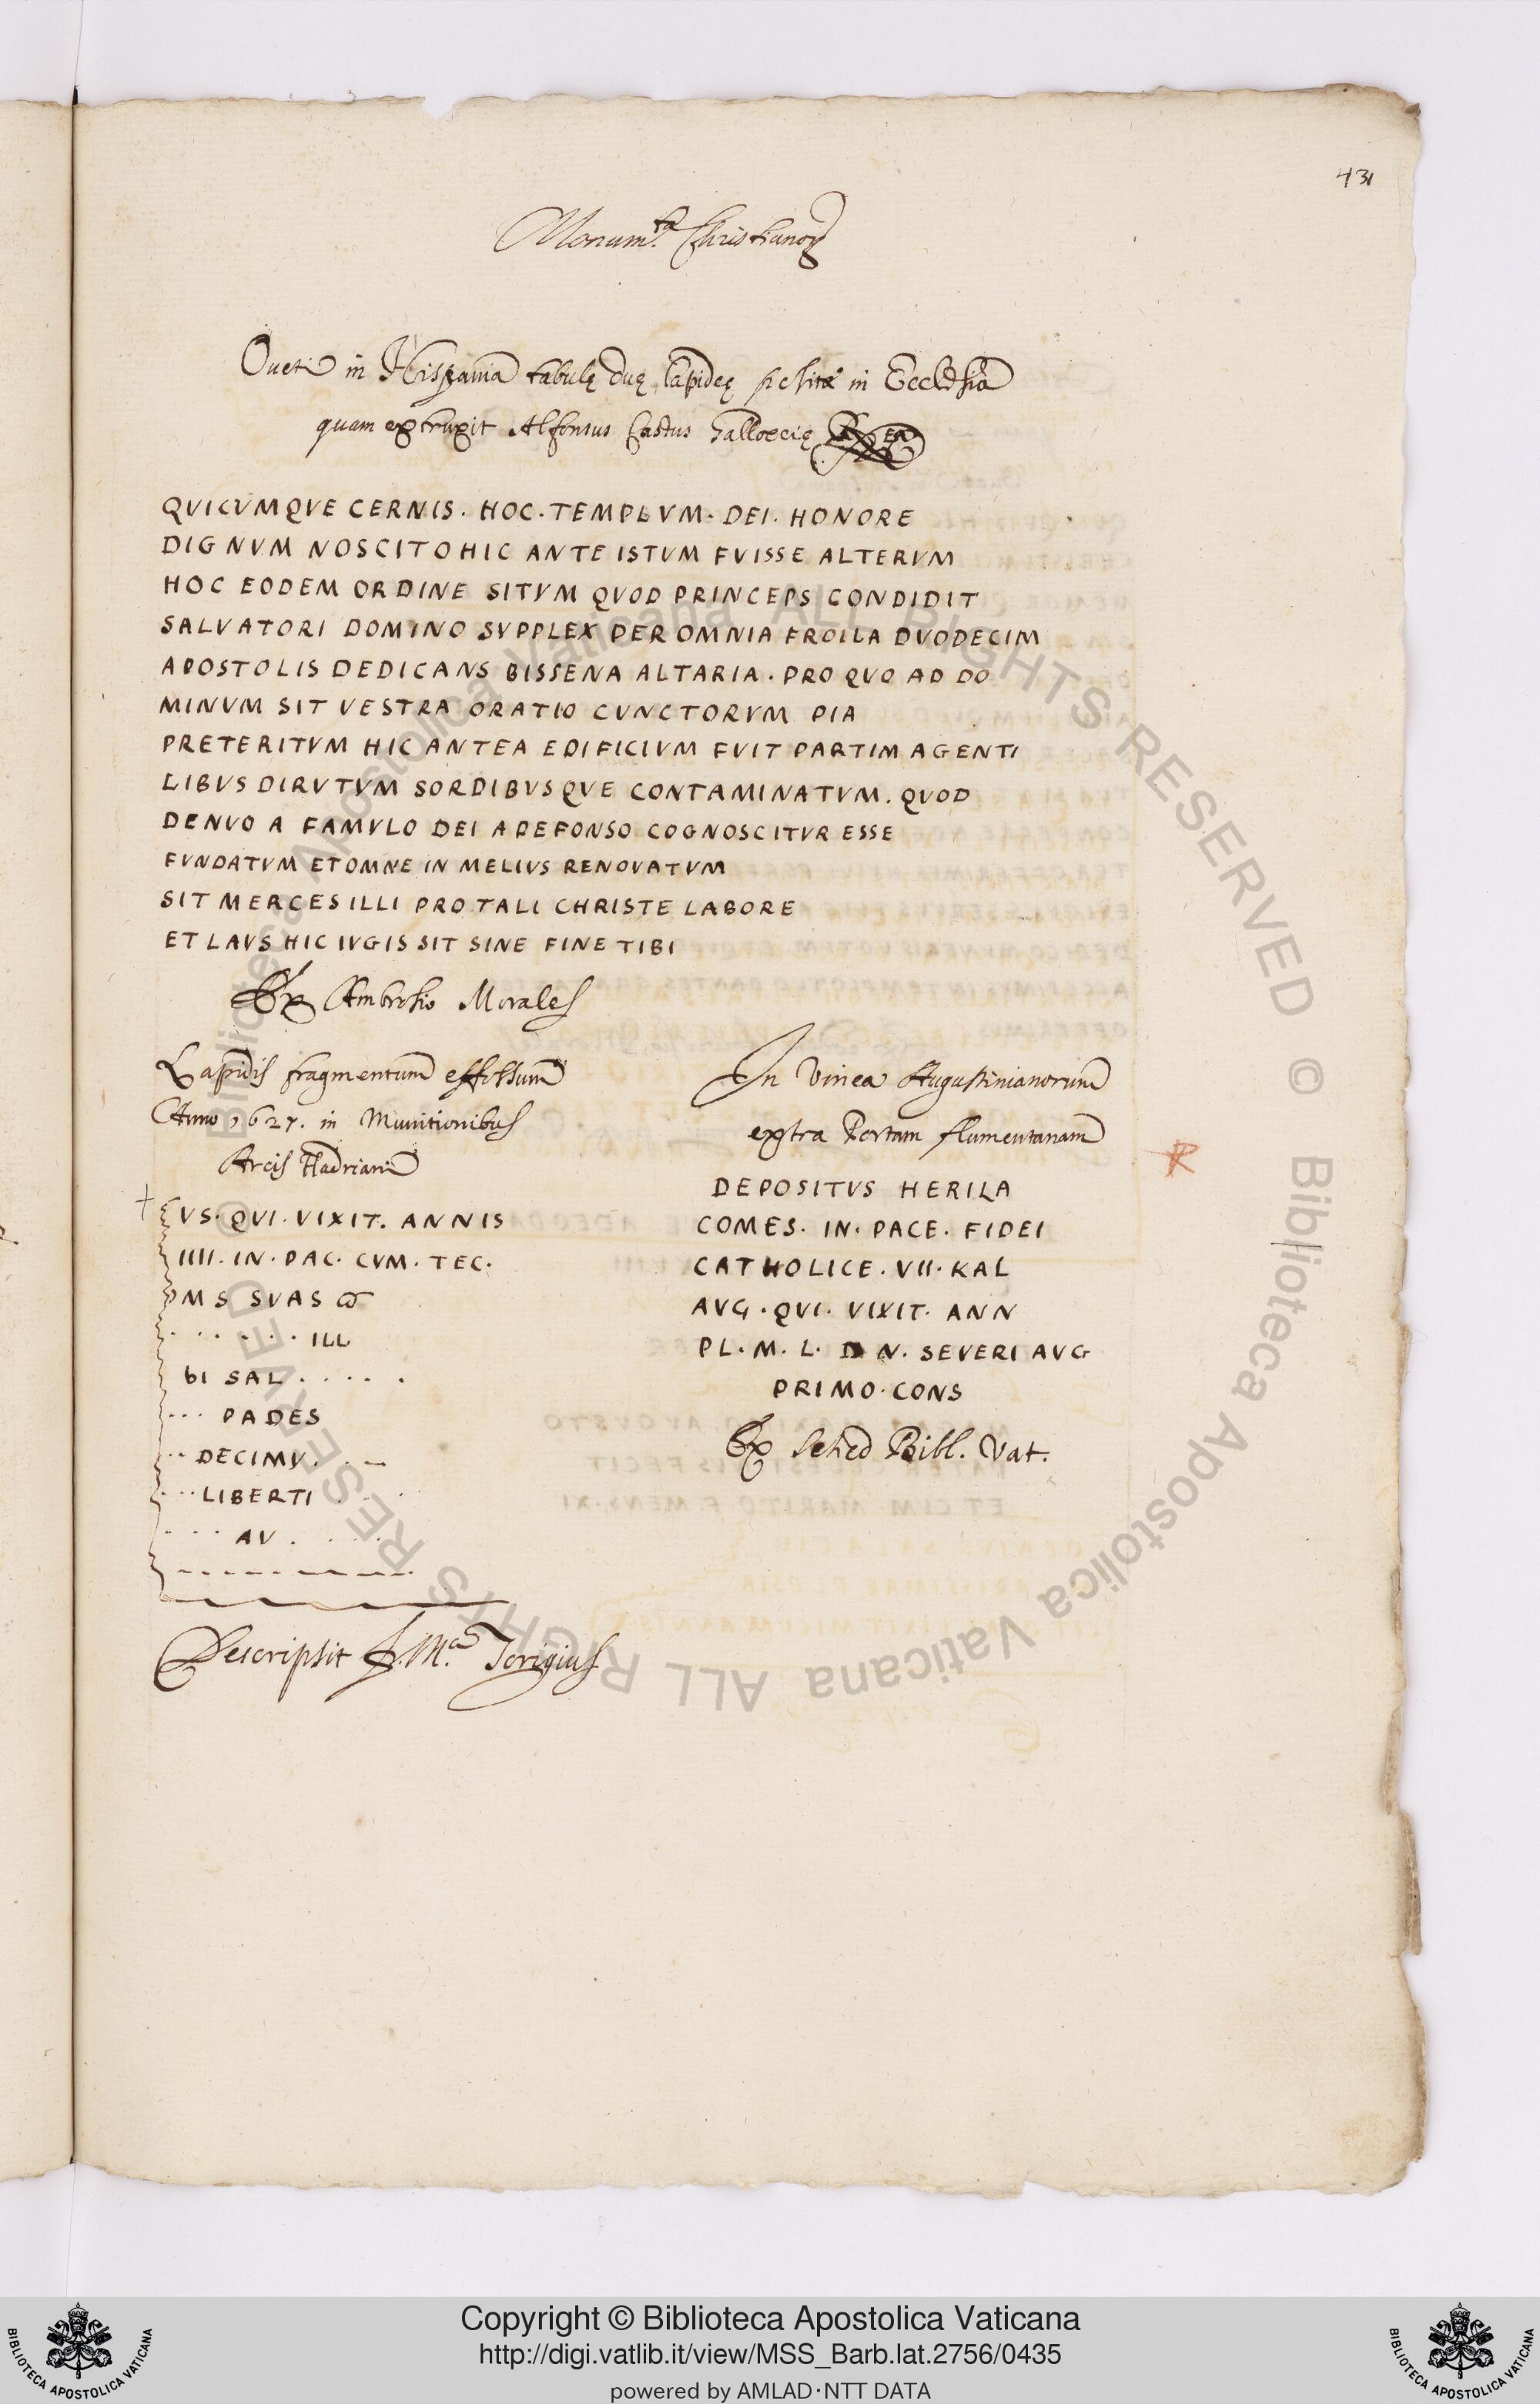 431
Monum.ta Christianoꝝ
Oueti in Hispania tabulę duę lapideę in Ecclesia
quam extruxit Alfonsus Castus Galloecię
QVICVMQVE CERNIS. HOC. TEMPLVM. DEI. HONORE
DIGNVM NOSCITO HIC ANTE ISTVM FVISSE ALTERVM
HOC EODEM ORDINE SITVM QVOD PRINCEPS CONDIDIT
SALVATORI DOMINO SVPPLEX PER OMNIA FROILA DVODECIM
APOSTOLIS DEDICANS BISSENA ALTARIA. PRO QVO AD DO
MINVM SIT VESTRA ORATIO CVNCTORVM PIA
PRETERITVM HIC ANTEA EDIFICIVM FVIT PARTIM A GENTI
LIBVS DIRVTVM SORDIBVSQVE CONTAMINATVM. QVOD
DENVO A FAMVLO DEI ADEFONSO COGNOSCITVR ESSE
FVNDATVM ET OMNE IN MELIVS RENOVATVM
SIT MERCES ILLI PRO TALI CHRISTE LABORE
ET LAVS HIC IVGIS SIT SINE FINE TIBI
Ex Ambrosio Morales
Lapidis fragmentum effossum
Anno 1627. in Munitionibus
Arcis Hadriani
VS. QVI. VIXIT. ANNIS
IIII. IN. PAC. CVM. TEC.
MS SVAS
. . . . . . ILL
bI SAL . . . . .
... PADES
.. DECIMV . .
... LIBERTI . .
... AV . . . .
Descripsit F. M.a Torigius
In Vinea Augustinianorum
extra Portam flumentanam
DEPOSITVS HERILA
COMES. IN. PACE. FIDEI
CATHOLICE. VII. KAL
AVG. QVI. VIXIT. ANN
PL. M. L. D N. SEVERI AVG
PRIMO. CONS
Ex Sched Bibl. Vat.
© Biblioteca Apostolica Vaticana ALL RIGHTS RESERVED
© Biblioteca Apostolica Vaticana ALL RIGHTS RESERVED
Copyright © Biblioteca Apostolica Vaticana
http://digi.vatlib.it/view/MSS_Barb.lat.2756/0435
powered by AMLAD·NTT DATA
BIBLIOTECA APOSTOLICA VATICANA
BIBLIOTECA APOSTOLICA VATICANA